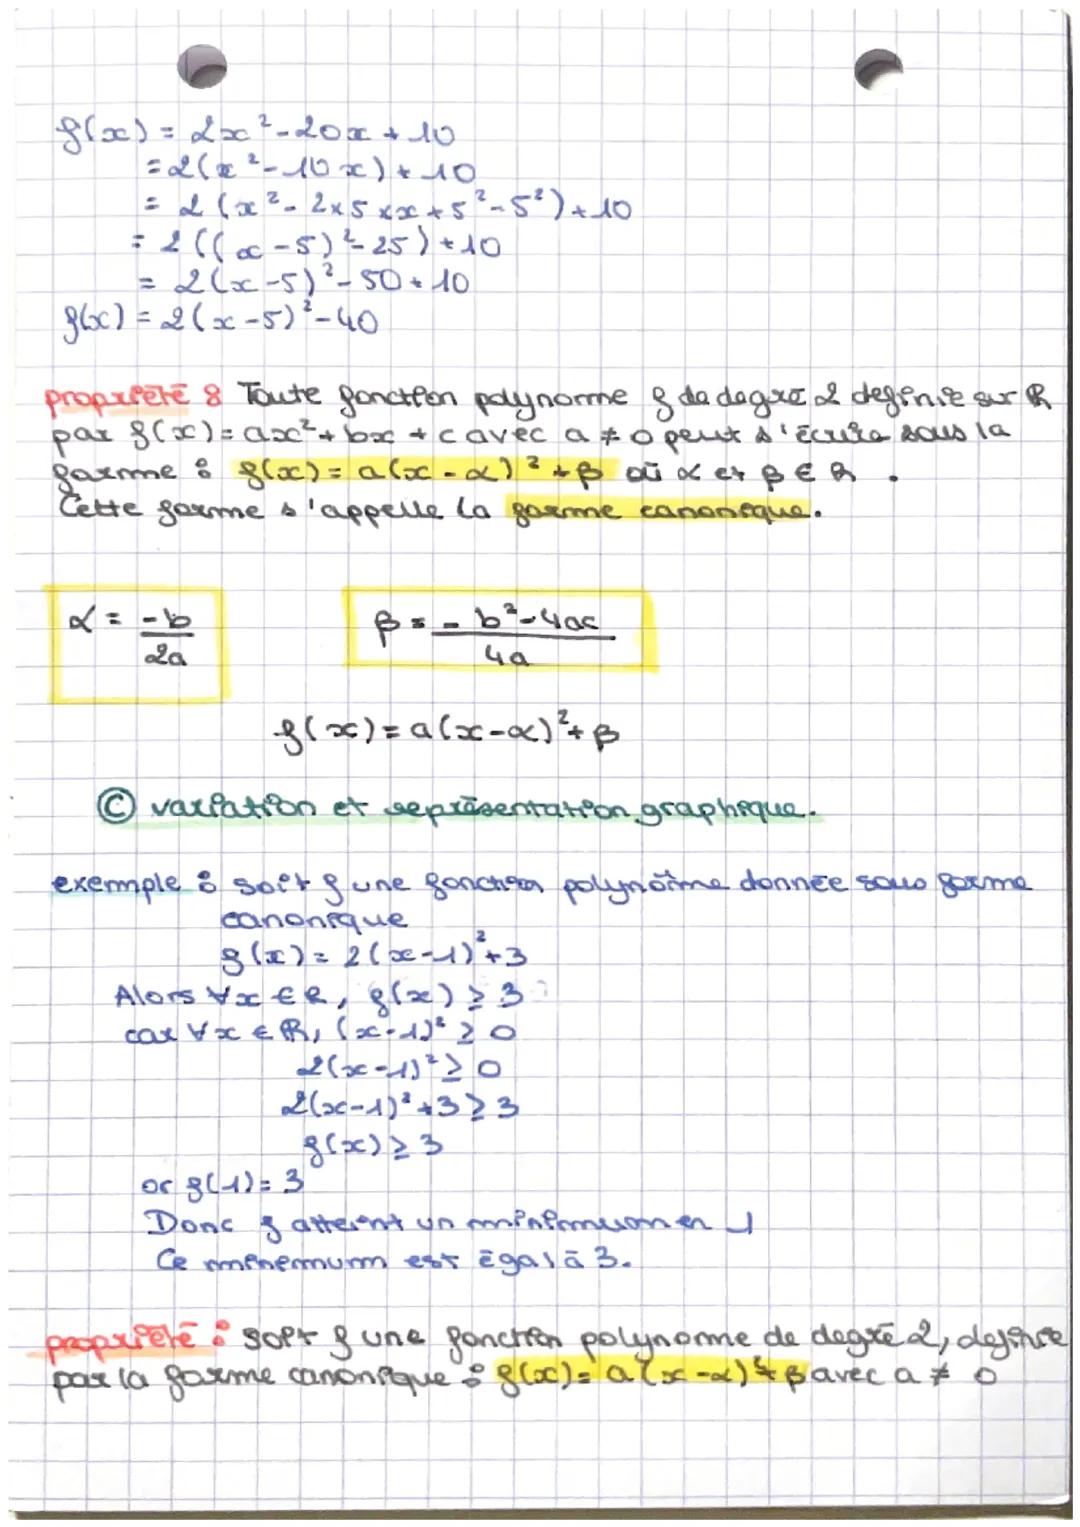 f(x) = 2x² - 20x + 10
= 2(x² - 10x) + 10
= 2(x² - 2×5×x + 5² - 5²) + 10
= 2((x - 5)² - 25) + 10
= 2(x - 5)² - 50 + 10
f(x) = 2(x - 5)² - 40
propriété : Toute fonction polynôme f de degré 2 definie sur ℝ
par f(x) = ax² + bx + c avec a ≠ 0 peut s'écrire sous la
forme : f(x) = a(x - α)² + β où α et β ∈ ℝ.
Cette forme s'appelle la forme canonique.
α = -b/2a β = - b²-4ac/4a
f(x) = a(x - α)² + β
Ⓒ variation et représentation graphique.
exemple : soit f une fonction polynôme donnée sous forme
canonique
f(x) = 2(x - 1)² + 3
Alors ∀x ∈ ℝ, f(x) ≥ 3
car ∀x ∈ ℝ, (x - 1)² ≥ 0
2(x - 1)² ≥ 0
2(x - 1)² + 3 ≥ 3
f(x) ≥ 3
or f(1) = 3
Donc f atteint un minimum en 1
Ce minimum est égal à 3.
propriété : soit f une fonction polynome de degré 2, definie
par la forme canonique : f(x) = a(x - α)² + β avec a ≠ 0